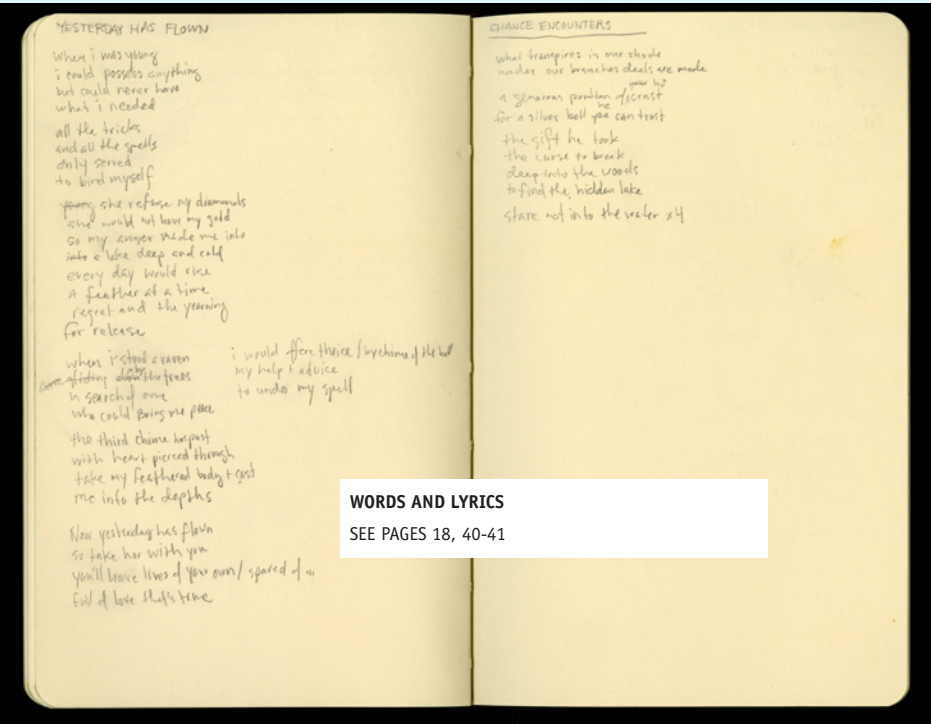 YESTERDAY HAS FLOWN
when i was young
i could possess anything
but could never have
what i needed
all the tricks
and all the spells
only served
to bind myself
young she refuse my diamonds
she would not have my gold
so my anger made me into
into a lake deep and cold
every day would rise
a feather at a time
regret and the yearning
for release
when i stood a raven
gliding down the trees
in search of one
who could bring me peace
i would offere thrice / by chime of the bell
my help + advice
to undo my spell
the third chime has past
with heart pierced through
take my feathered body + cast
me into the depths
Now yesterday has flown
so take her with you
you'll leave lives of your own / spared of
full of love that's true
CHANCE ENCOUNTERS
what transpires in our shade
under our branches deals are made
your
a generous portion of crust
he
for a silver bell you can trust
the gift he took
the curse to break
deep into the woods
to find the hidden lake
stare not into the water x4
WORDS AND LYRICS
SEE PAGES 18, 40-41